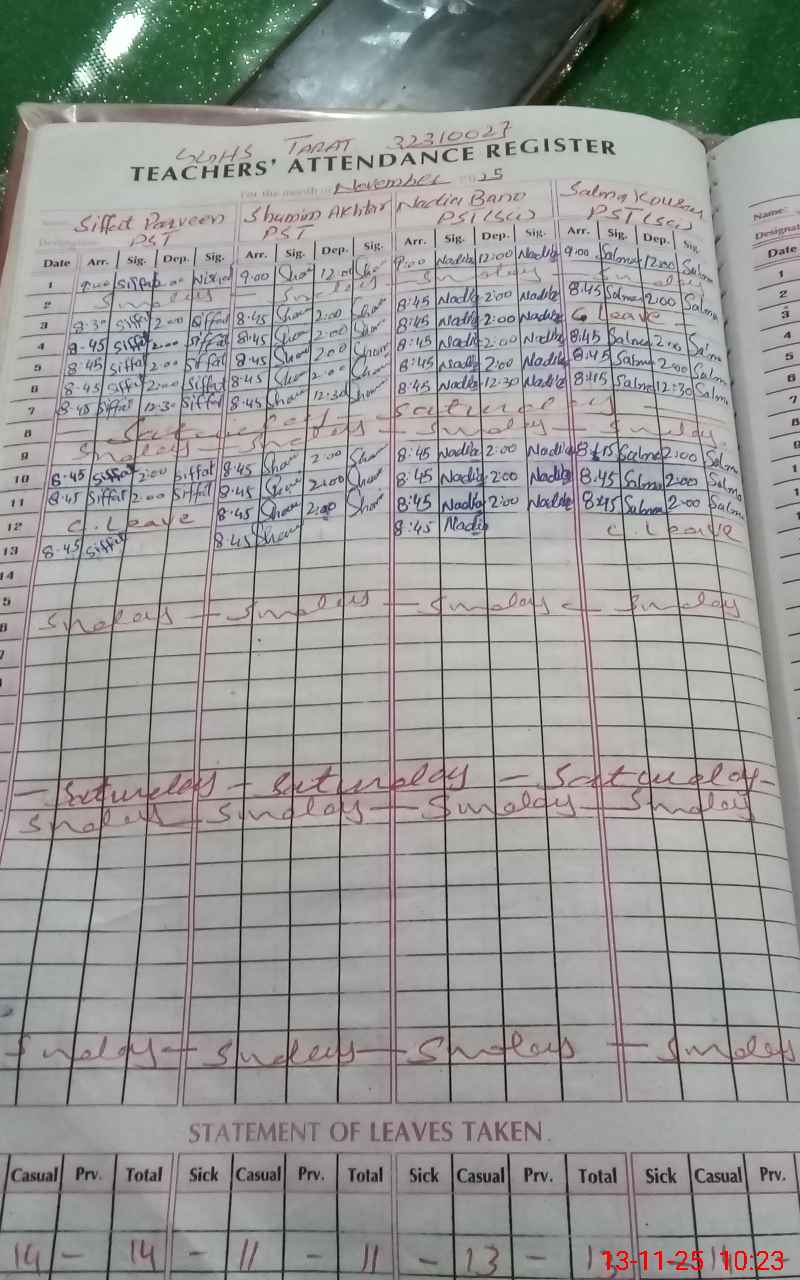 GGHS TARAT 32310027
TEACHERS' ATTENDANCE REGISTER
For the month of November 2025
Siffat Parveen Shamim Akhtar Nadia Bano Salma Kousar Name:
PST PST PST (Sci) PST (Sci) Designat
Date Arr. Sig. Dep. Sig. Arr. Sig. Dep. Sig. Arr. Sig. Dep. Sig. Arr. Sig. Dep. Sig. Date
1 9:00 Siffat 9:00 Sham 12:00 Sham 9:00 Nadia 12:00 Nadia 9:00 Salma 12:00 Salma 1
2 Sunday Sunday Sunday Sunday 2
3 8:30 Siffat 2:00 Siffat 8:45 Sham 2:00 Sham 8:45 Nadia 2:00 Nadia 8:45 Salma 2:00 Salma 3
4 8:45 Siffat 2:00 Siffat 8:45 Sham 2:00 Sham 8:45 Nadia 2:00 Nadia C Leave 4
5 8:45 Siffat 2:00 Siffat 8:45 Sham 2:00 Sham 8:45 Nadia 2:00 Nadia 8:45 Salma 2:00 Salma 5
6 8:45 Siffat 2:00 Siffat 8:45 Sham 2:00 Sham 8:45 Nadia 2:00 Nadia 8:45 Salma 2:00 Salma 6
7 8:45 Siffat 12:30 Siffat 8:45 Sham 12:30 Sham 8:45 Nadia 12:30 Nadia 8:45 Salma 12:30 Salma 7
8 Saturday Saturday 8
9 Sunday Sunday Sunday Sunday 9
10 8:45 Siffat 2:00 Siffat 8:45 Sham 2:00 Sham 8:45 Nadia 2:00 Nadia 8:45 Salma 2:00 Salma 10
11 8:45 Siffat 2:00 Siffat 8:45 Sham 2:00 Sham 8:45 Nadia 2:00 Nadia 8:45 Salma 2:00 Salma 11
12 C. Leave 8:45 Sham 2:00 Sham 8:45 Nadia 2:00 Nadia 8:45 Salma 2:00 Salma 12
13 8:45 Siffat 8:45 Sham 8:45 Nadia C. Leave 13
14 14
5
6 Sunday - Sunday - Sunday - Sunday
7
- Saturday - Saturday - Saturday -
Sunday - Sunday - Sunday - Sunday
Sunday - Sunday - Sunday - Sunday
STATEMENT OF LEAVES TAKEN
Casual Prv. Total Sick Casual Prv. Total Sick Casual Prv. Total Sick Casual Prv.
14 - 14 - 11 - 11 - 13 -
13-11-25 10:23